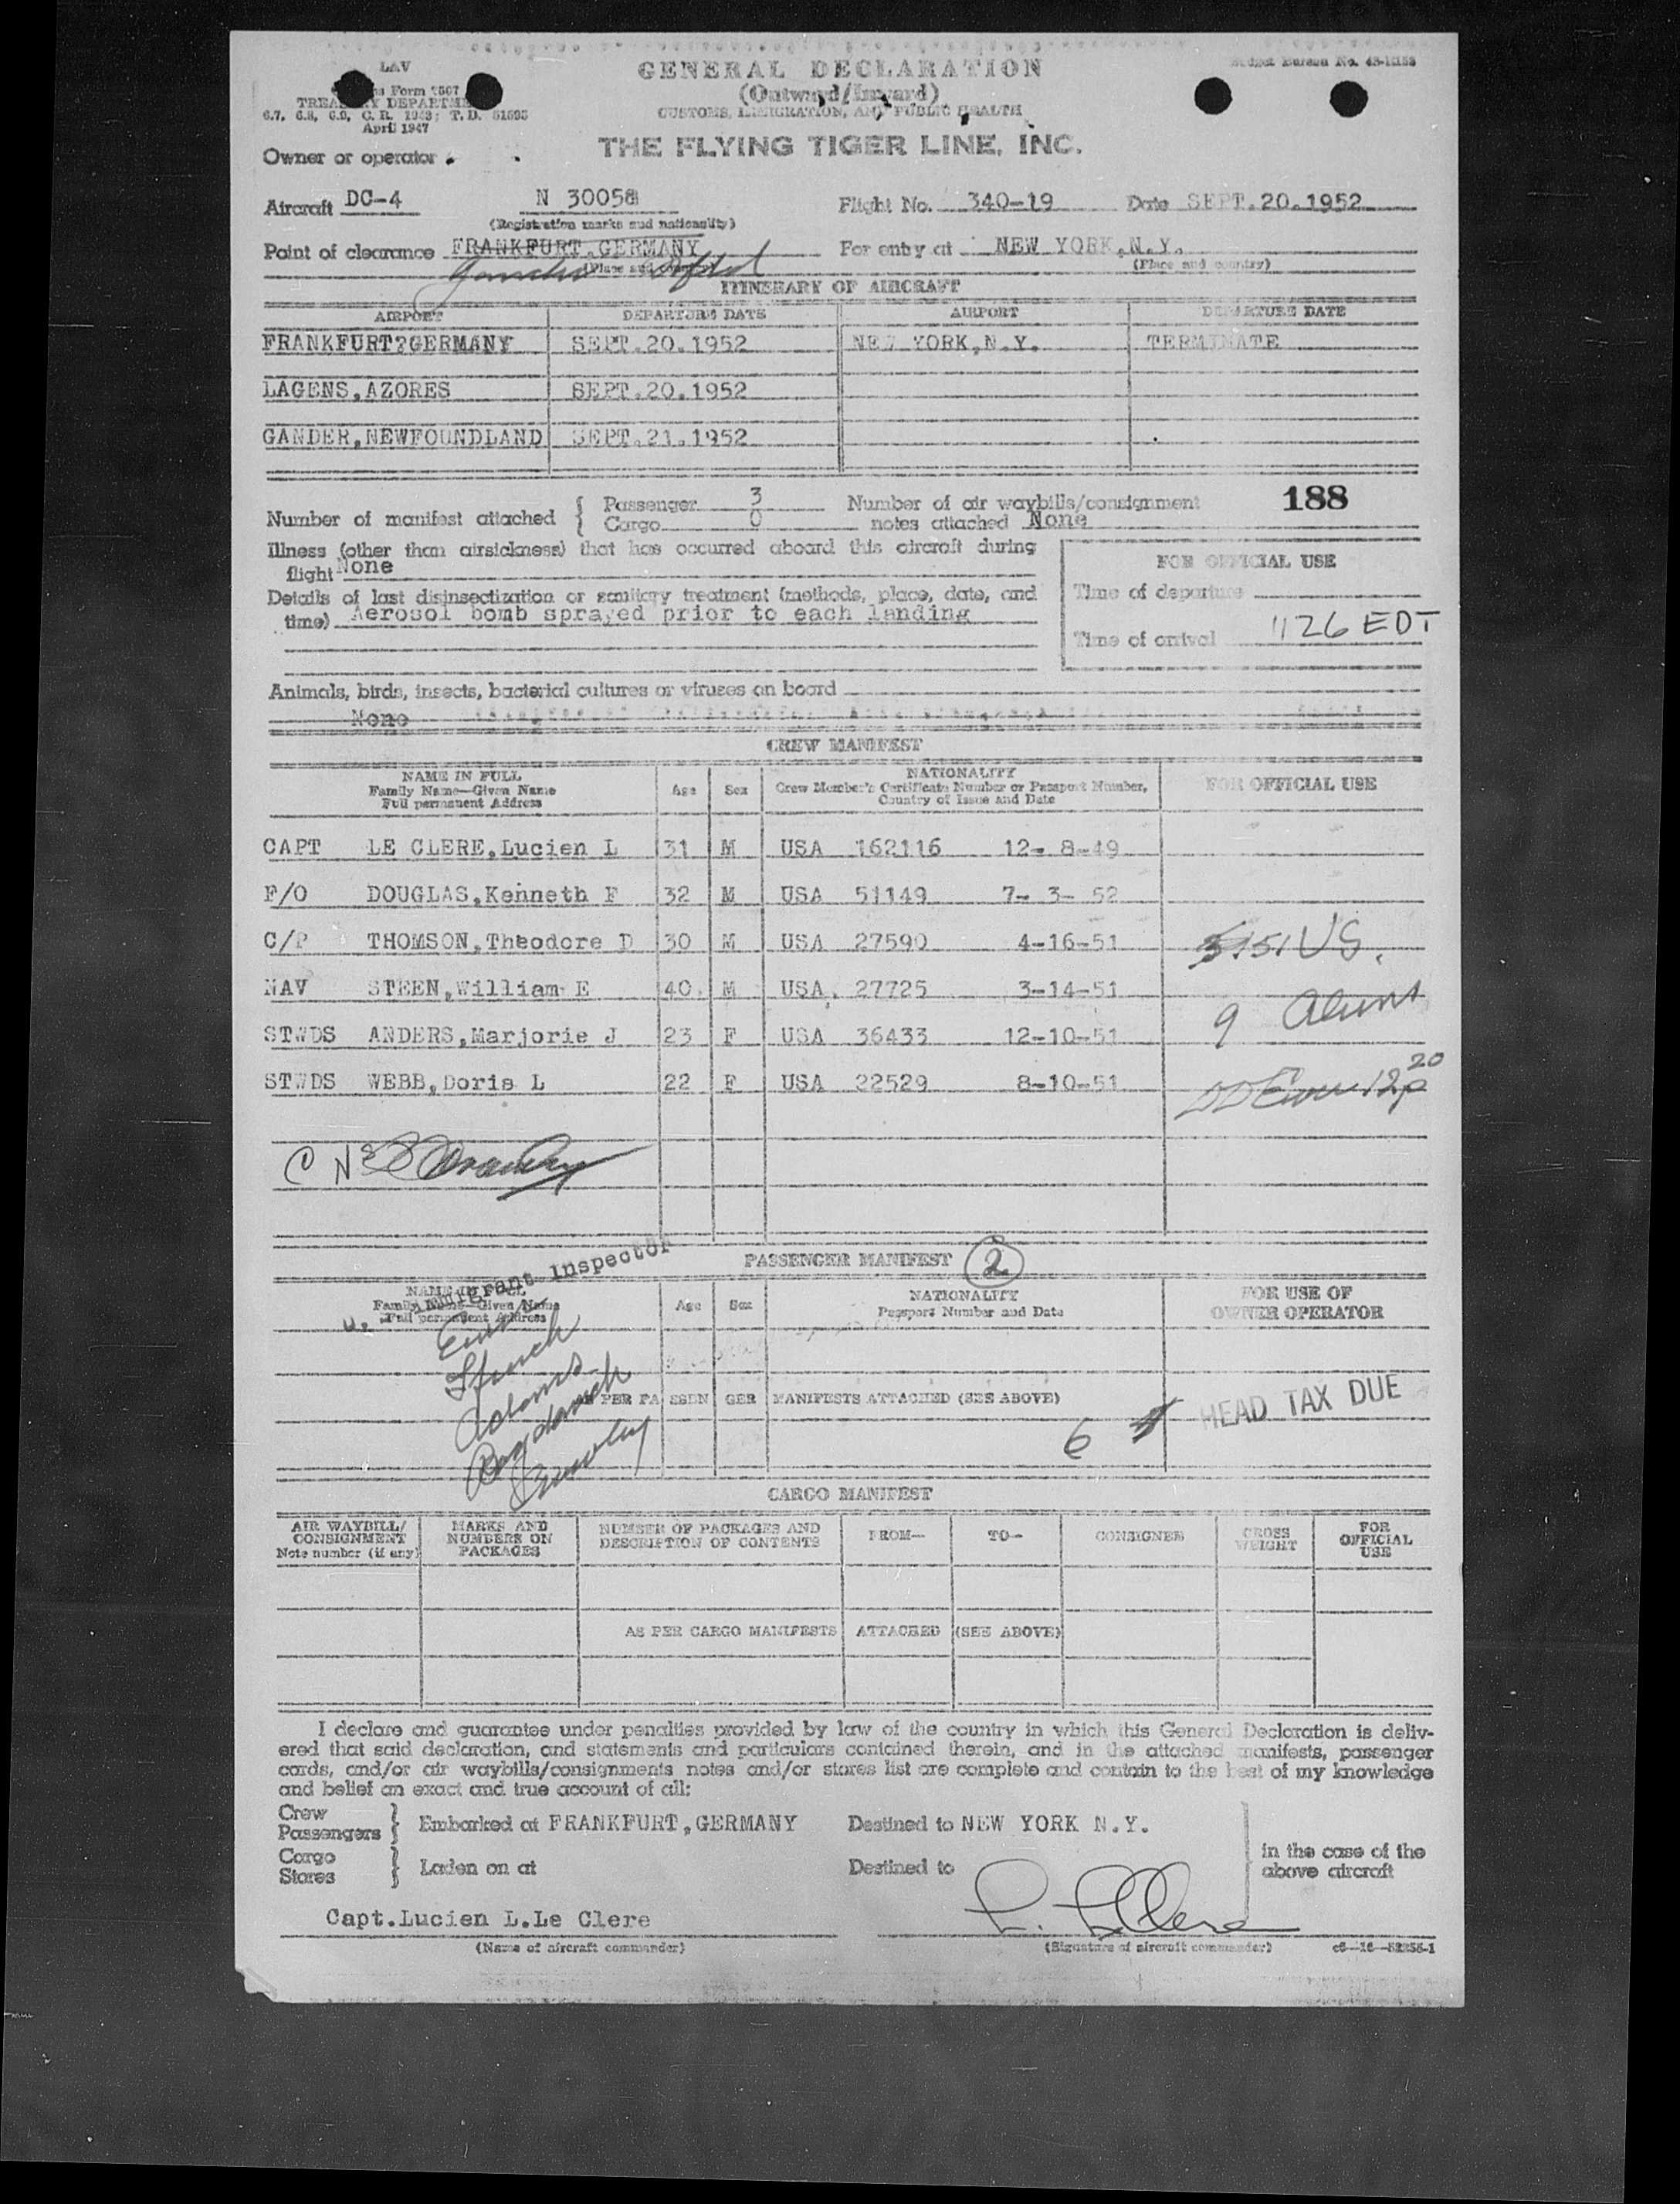 LAV
GENERAL DECLARATION
Budget Bureau No. 48-R158
Customs Form 7507
(Outward/Inward)
TREASURY DEPARTMENT
CUSTOMS, IMMIGRATION, AND PUBLIC HEALTH
6.7, 6.8, 6.9, C. R. 1943; T. D. 51505
April 1947
THE FLYING TIGER LINE, INC.
Owner or operator
Aircraft DC-4 N 30058 Flight No. 340-19 Date SEPT.20.1952
(Registration marks and nationality)
Point of clearance FRANKFURT,GERMANY For entry at NEW YORK,N.Y.
(Place and country) (Place and country)
ITINERARY OF AIRCRAFT
AIRPORT DEPARTURE DATE AIRPORT DEPARTURE DATE
FRANKFURT?GERMANY SEPT.20.1952 NEW YORK,N.Y. TERMINATE
LAGENS,AZORES SEPT.20.1952
GANDER,NEWFOUNDLAND SEPT.21.1952
Number of manifest attached { Passenger 3 Number of air waybills/consignment 188
Cargo 0 notes attached None
Illness (other than airsickness) that has occurred aboard this aircraft during
flight None
FOR OFFICIAL USE
Details of last disinsectization or sanitary treatment (methods, place, date, and
Time of departure
time) Aerosol bomb sprayed prior to each landing
Time of arrival 1126 EDT
Animals, birds, insects, bacterial cultures or viruses on board
None
CREW MANIFEST
NAME IN FULL
Family Name—Given Name
Full permanent Address
Age Sex
NATIONALITY
Crew Member's Certificate Number or Passport Number,
Country of Issue and Date
FOR OFFICIAL USE
CAPT LE CLERE,Lucien L 31 M USA 162116 12- 8-49
F/O DOUGLAS,Kenneth F 32 M USA 51149 7- 3- 52
C/P THOMSON,Theodore D 30 M USA 27590 4-16-51
51 US.
NAV STEEN,William E 40 M USA. 27725 3-14-51
9 Aliens
STWDS ANDERS,Marjorie J 23 F USA 36433 12-10-51
STWDS WEBB,Doris L 22 F USA 22529 8-10-51
12 20 p
PASSENGER MANIFEST 2
Immigrant Inspector
NAME IN FULL
Family Name—Given Name
Full permanent Address
Age Sex
NATIONALITY
Passport Number and Date
FOR USE OF
OWNER OPERATOR
Adams
AS PER PASSENGER MANIFESTS ATTACHED (SEE ABOVE)
6 HEAD TAX DUE
CARGO MANIFEST
AIR WAYBILL/
CONSIGNMENT
Note number (if any)
MARKS AND
NUMBERS ON
PACKAGES
NUMBER OF PACKAGES AND
DESCRIPTION OF CONTENTS
FROM— TO— CONSIGNEE
GROSS
WEIGHT
FOR
OFFICIAL
USE
AS PER CARGO MANIFESTS ATTACHED (SEE ABOVE)
I declare and guarantee under penalties provided by law of the country in which this General Declaration is deliv-
ered that said declaration, and statements and particulars contained therein, and in the attached manifests, passenger
cards, and/or air waybills/consignments notes and/or stores list are complete and contain to the best of my knowledge
and belief an exact and true account of all:
Crew
Passengers } Embarked at FRANKFURT,GERMANY Destined to NEW YORK N.Y.
Cargo
Stores } Laden on at Destined to
in the case of the
above aircraft
Capt.Lucien L.Le Clere L. LeClere
(Name of aircraft commander) (Signature of aircraft commander)